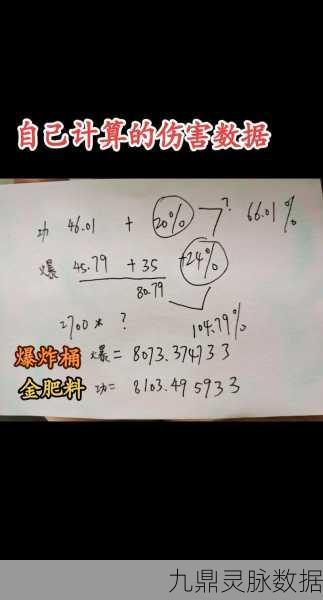 自己计算的伤害数据
功 46.01 + 20% ? 66.01%
爆 45.79 + 35 +24%
80.79
2700 ? 104.79%
爆炸桶 爆= 8073.374733
金肥料 功= 8103.495933
九鼎灵脉数据